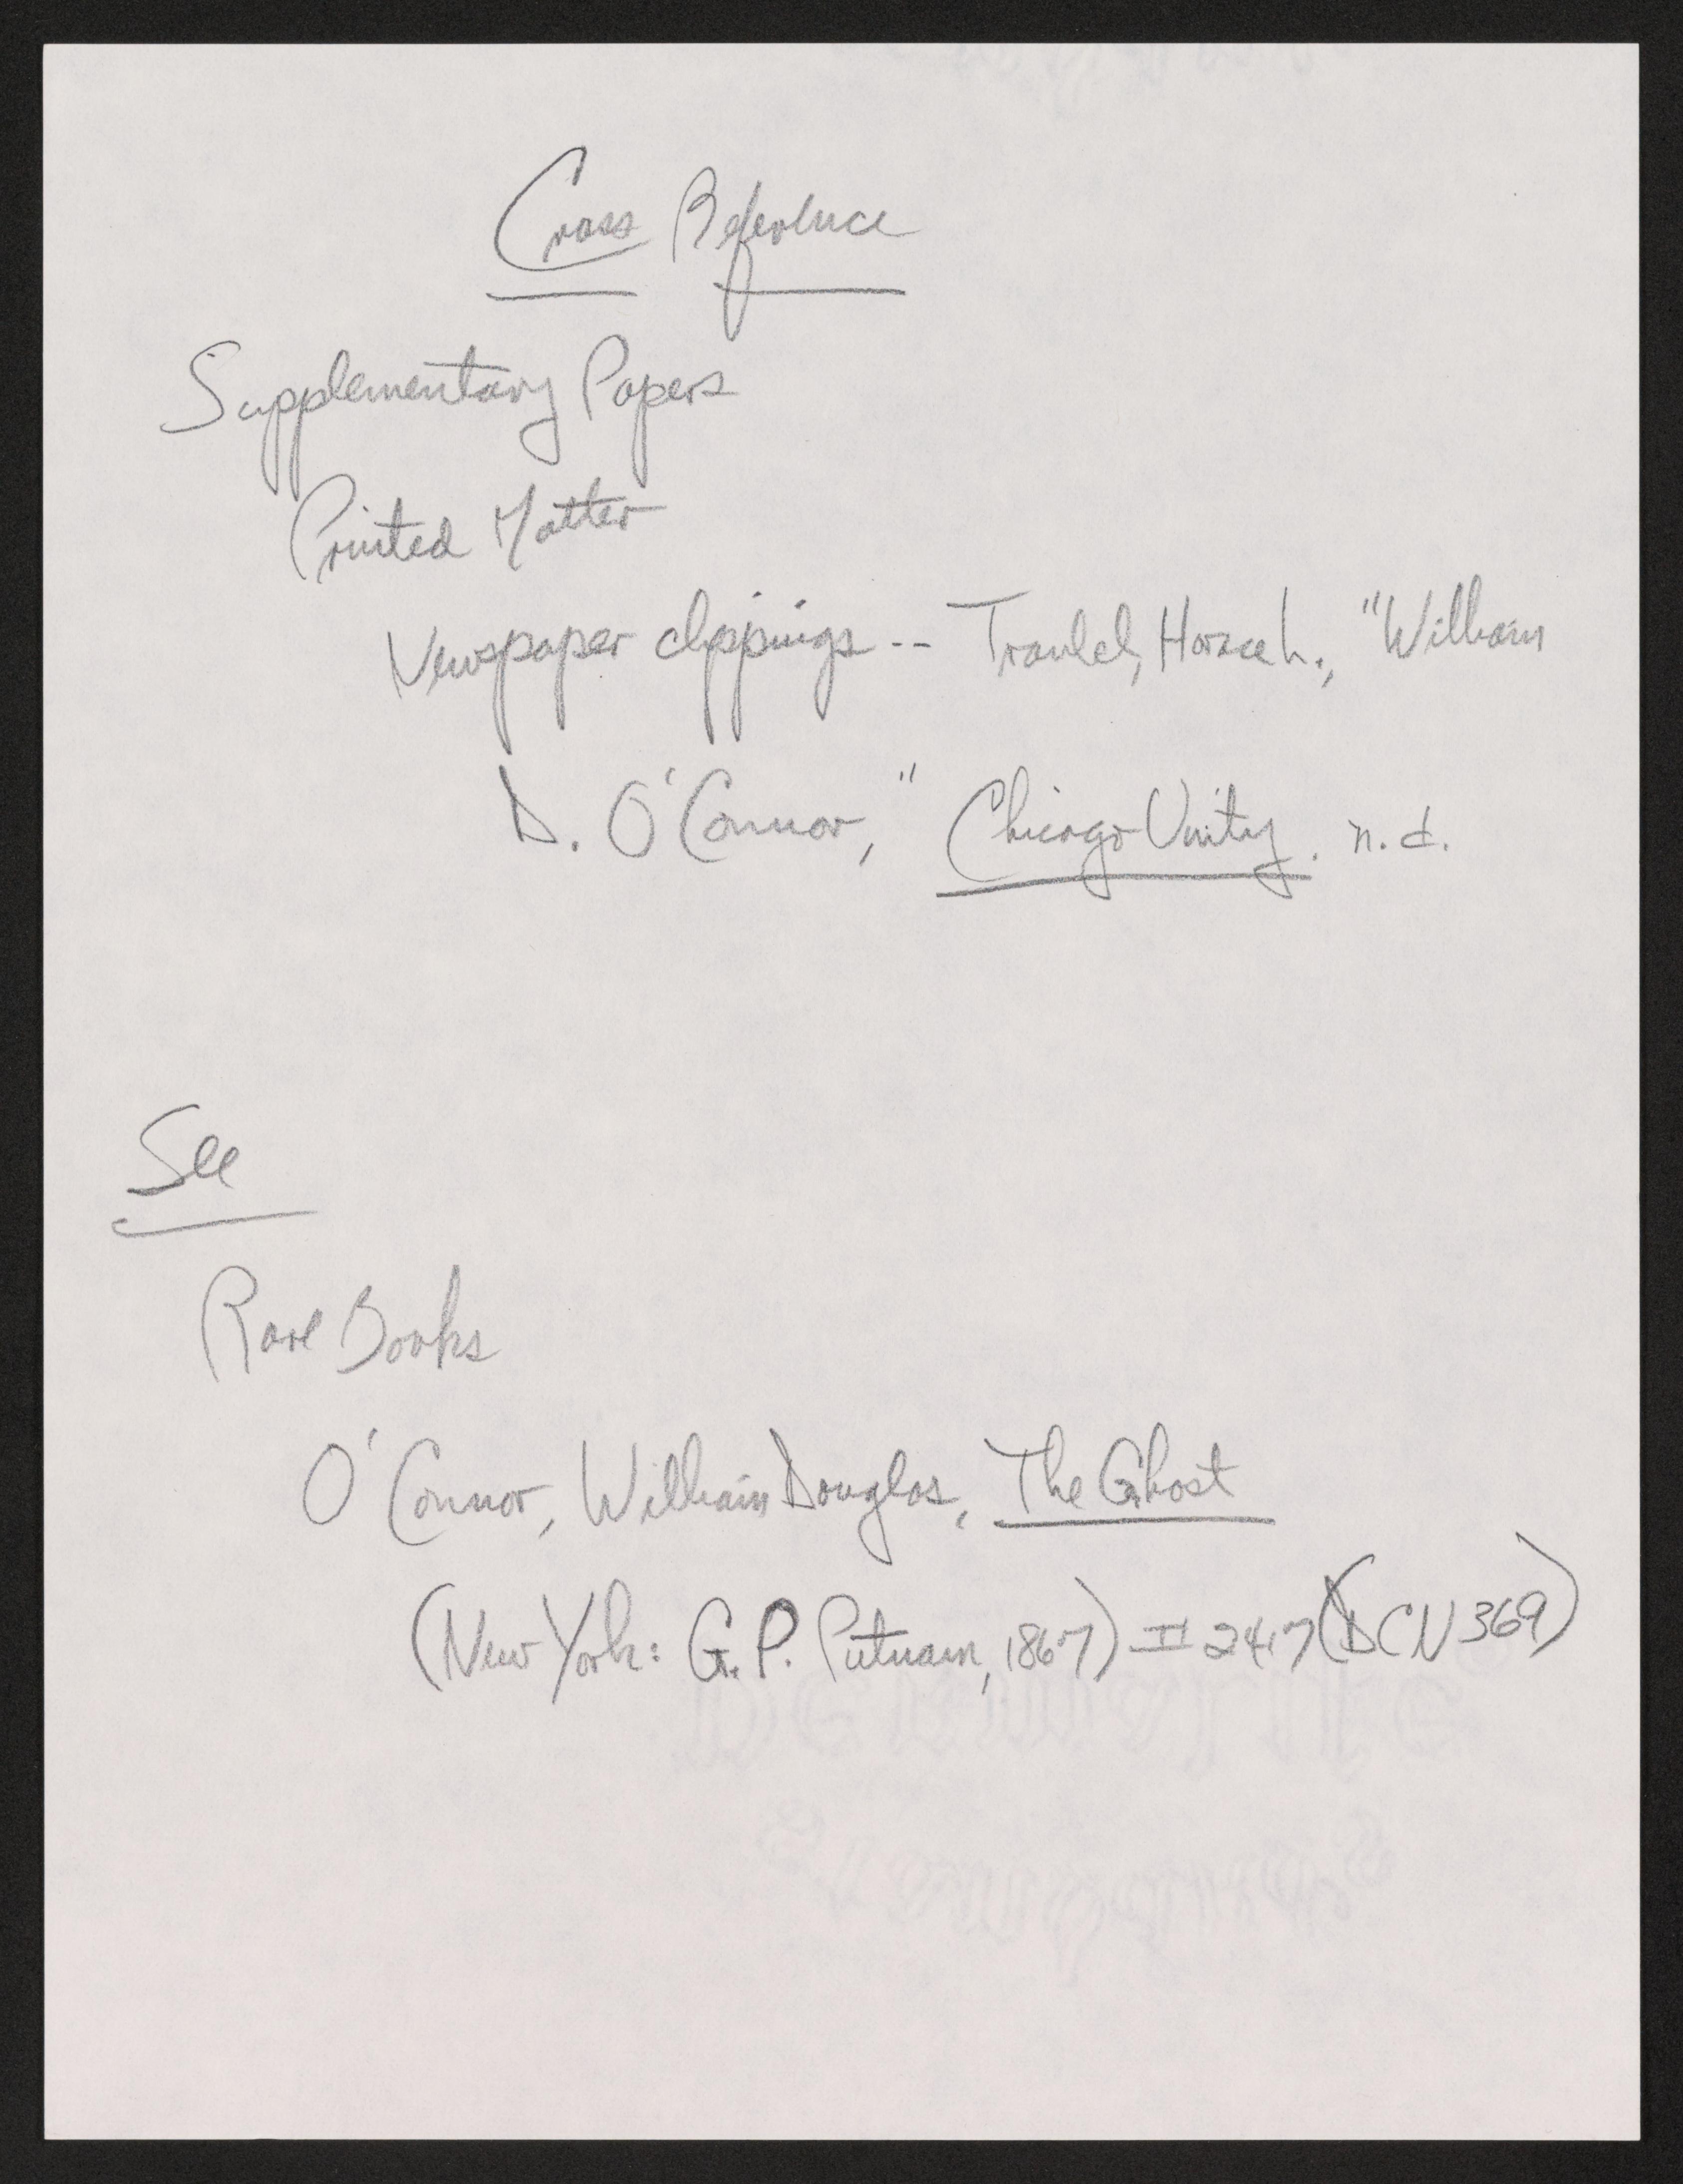 Cross Reference
Supplementary Papers
Printed Matter
Newspaper clippings -- Traubel, Horace L., "William
D. O'Connor," Chicago Unity. n.d.
See
Rare Books
O'Connor, William Douglas, The Ghost
(New York: G.P. Putnam, 1867) II 247 (DCN 369)